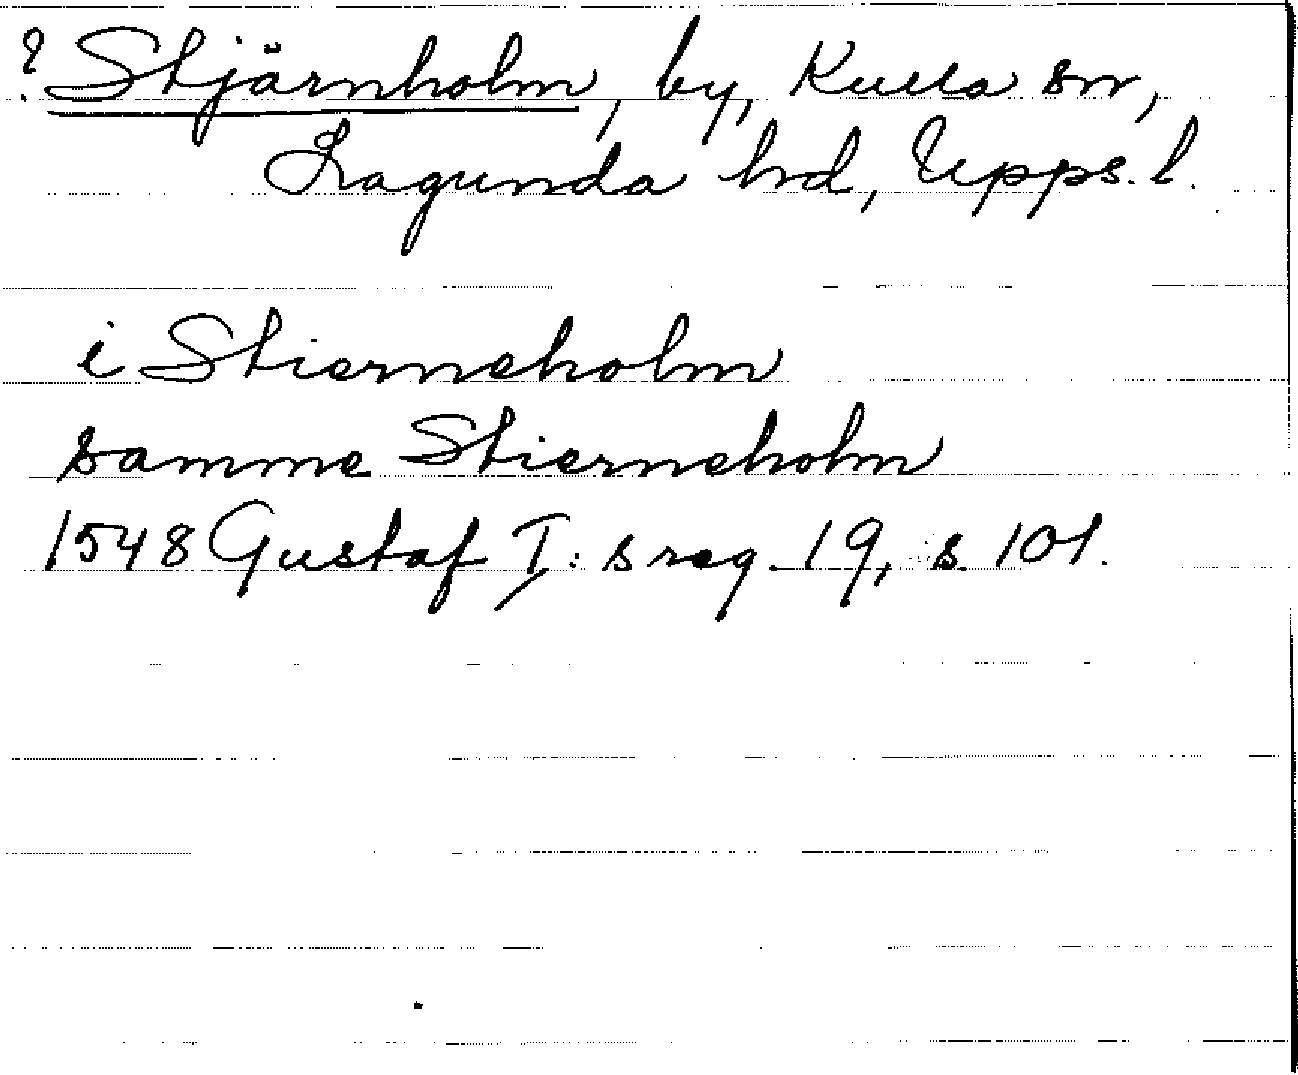 ? Stjärnholm, by, Kulla sn,
Lagunda hd, Upps. l.
i Stierneholm
samme Stierneholm
1548 Gustaf I: s reg. 19, s. 101.